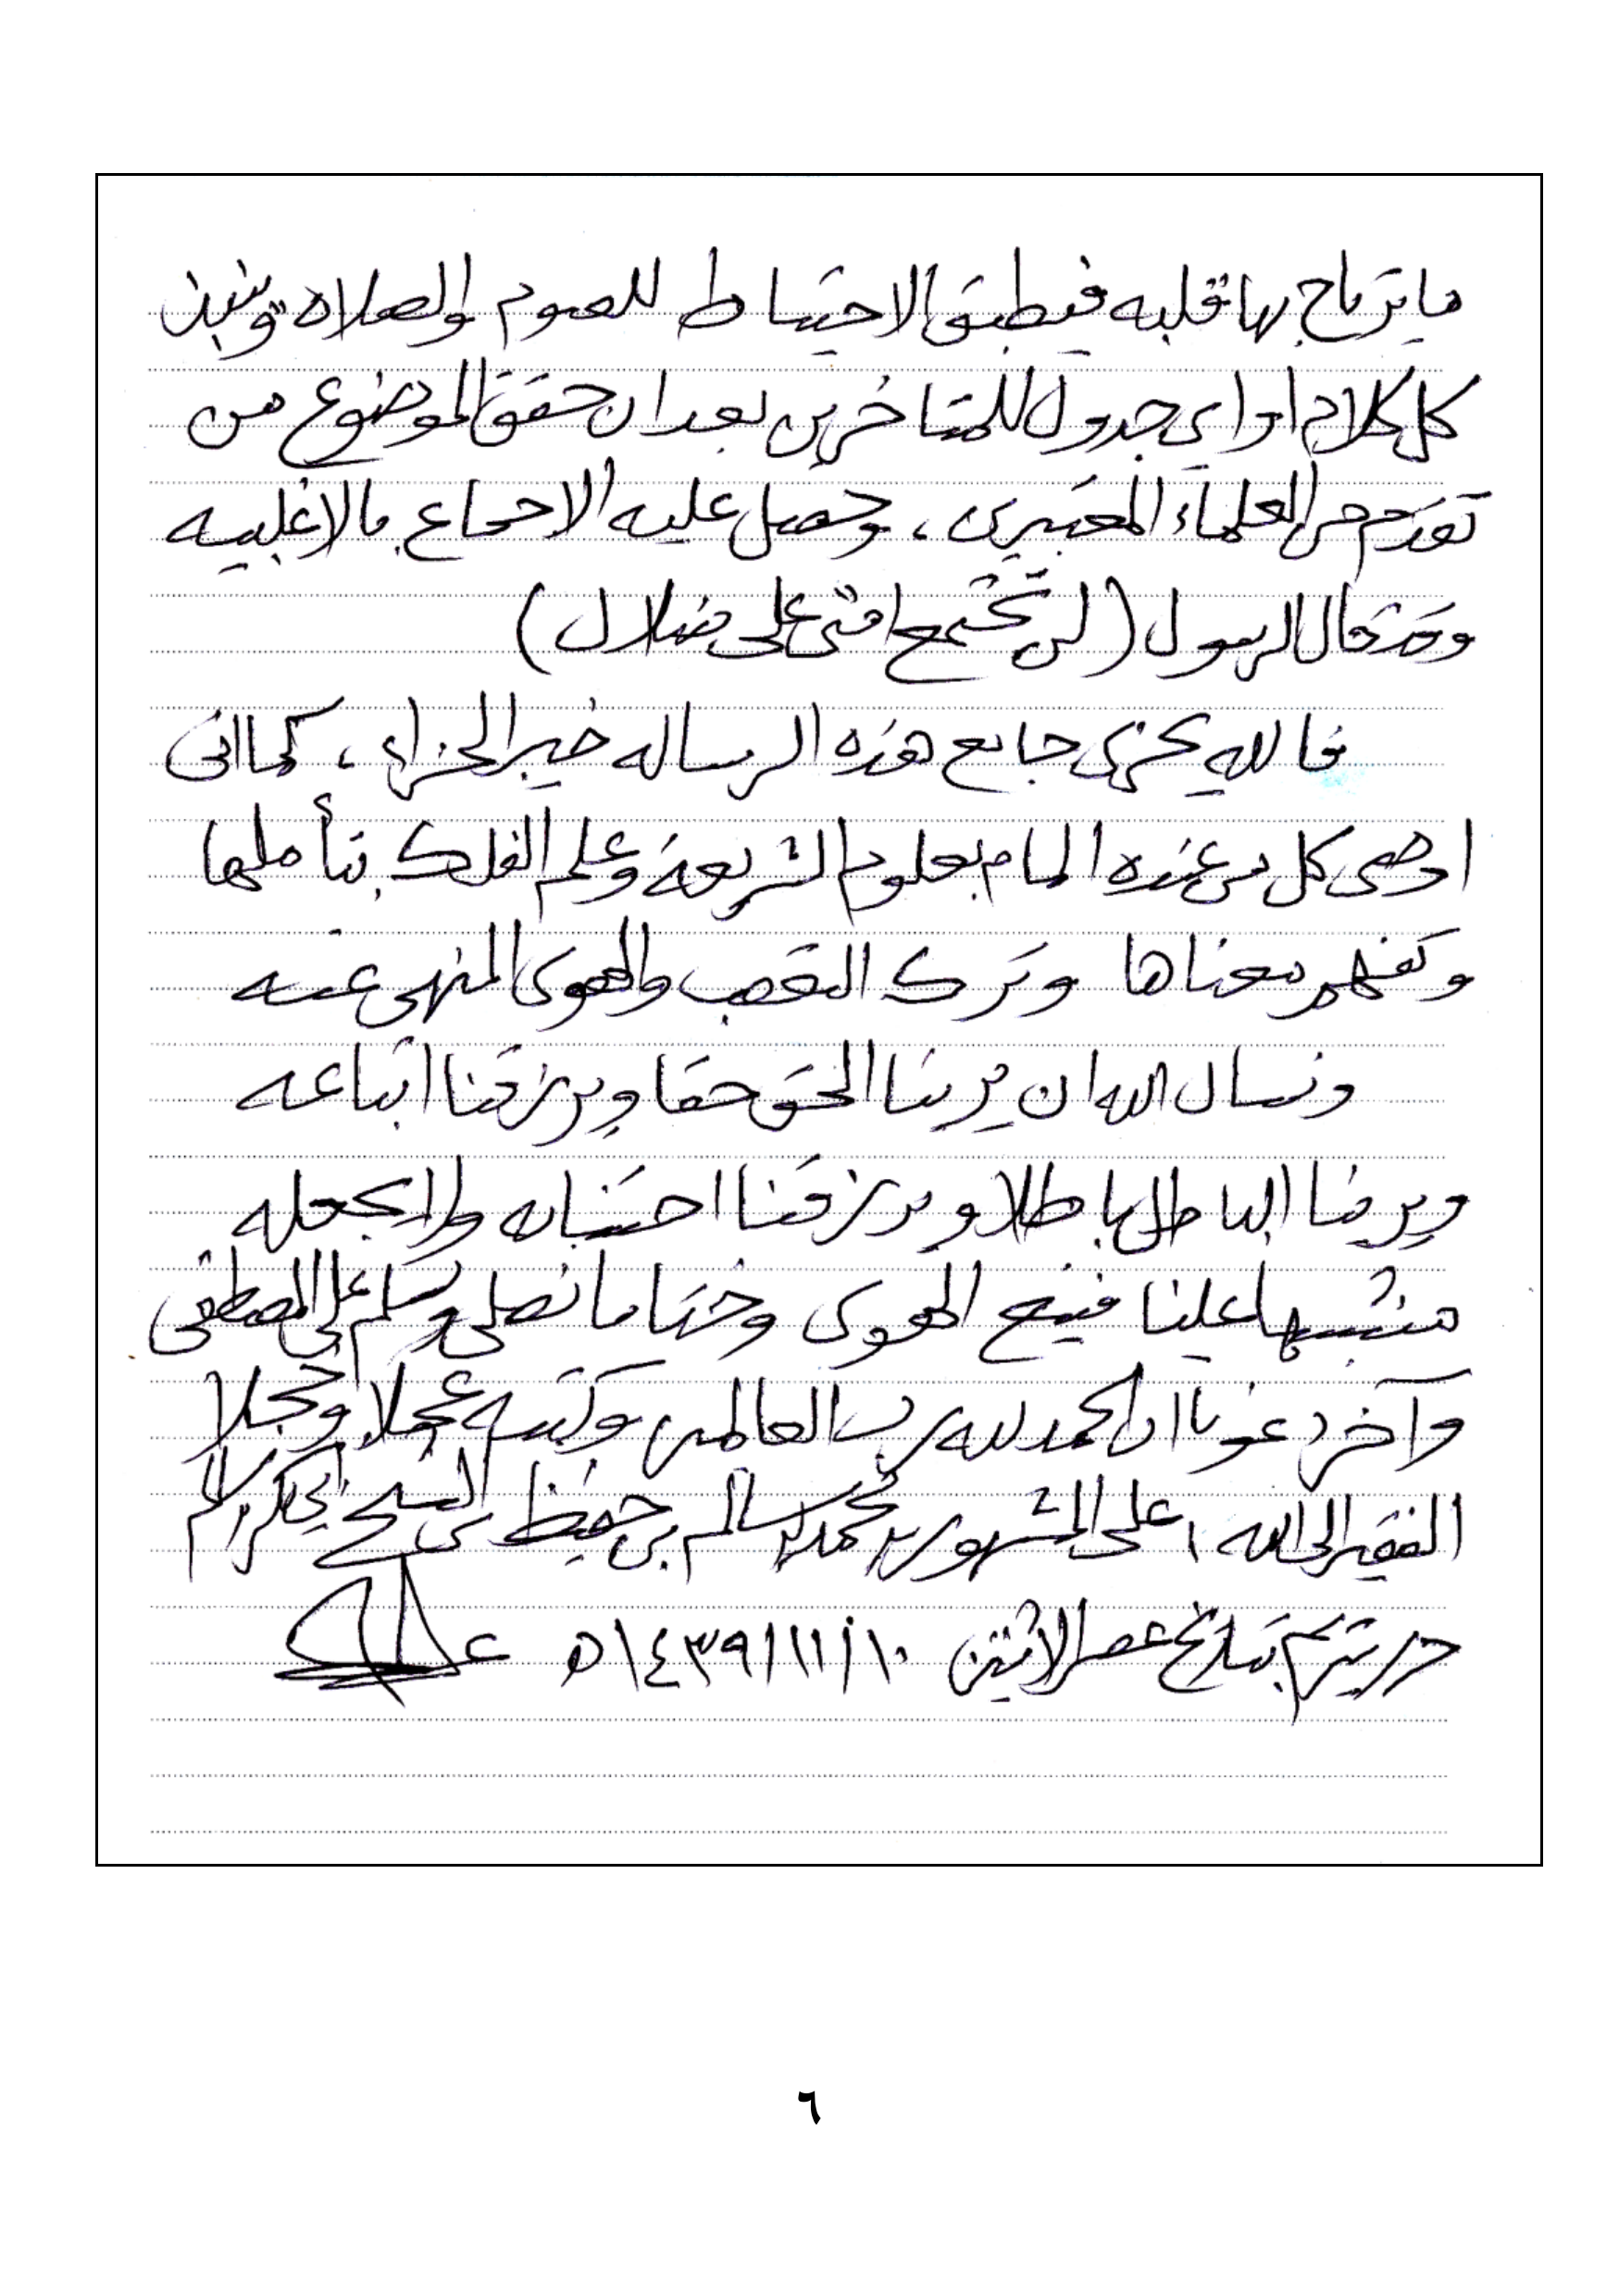 ما يرتاح بها قلبه فيطبق الاحتياط للصوم والصلاه وينبذ
كل كلام او اي جدول للمتاخرين بعد ان حقق الموضوع من
تقدم من العلماء المعتبرين ، وحصل عليه الاجماع بالاغلبيه
وقد قال الرسول (لن تجتمع امتي على ضلال)
فالله يجزي جامع هذه الرساله خير الجزاء ، كما اني
اوصي كل من عنده المام بعلوم الشريعة وعلم الفلك بتأملها
وتفهم معناها وترك التعصب والهوى المنهي عنه
ونسال الله ان يرينا الحق حقا ويرزقنا اتباعه
ويرينا الباطل باطلا ويرزقنا اجتنابه ولا يجعله
متشبها علينا فنتبع الهوى وختاما نصلي ونسلم على المصطفى
وآخر دعونا ان الحمد لله رب العالمين وكتبه عجلا وخجلا
الفقير الى الله علي المشهور بن محمد بن سالم بن حفيظ بن الشيخ ابي بكر بن سالم
حرر بتريم بتاريخ عصر الاثنين ١٠/١١/١٤٣٩ه
٦